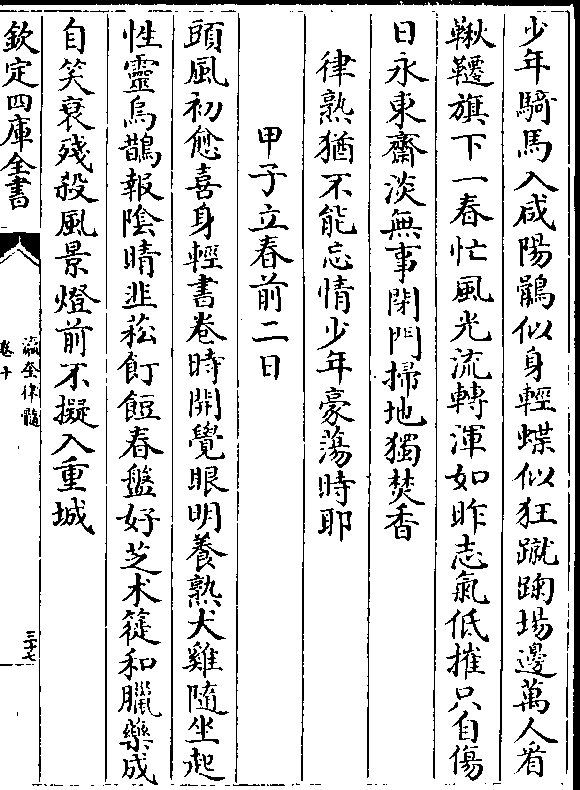 少年騎馬入咸陽鶻似身輕蝶似狂蹴踘塲邊萬人看
鞦韆旗下一春忙風光流轉渾如昨志氣低摧只自傷
日永東齋淡無事閉門掃地獨焚香
律熟猶不能忘情少年豪蕩時耶
甲子立春前二日
頭風初愈喜身輕書卷時開覺眼明養熟犬雞隨坐起
性靈烏鵲報陰晴韭菘飣餖春盤好芝术簁和臘藥成
自笑衰殘殺風景燈前不擬入重城
欽定四庫全書
瀛奎律髓
卷十
三十七